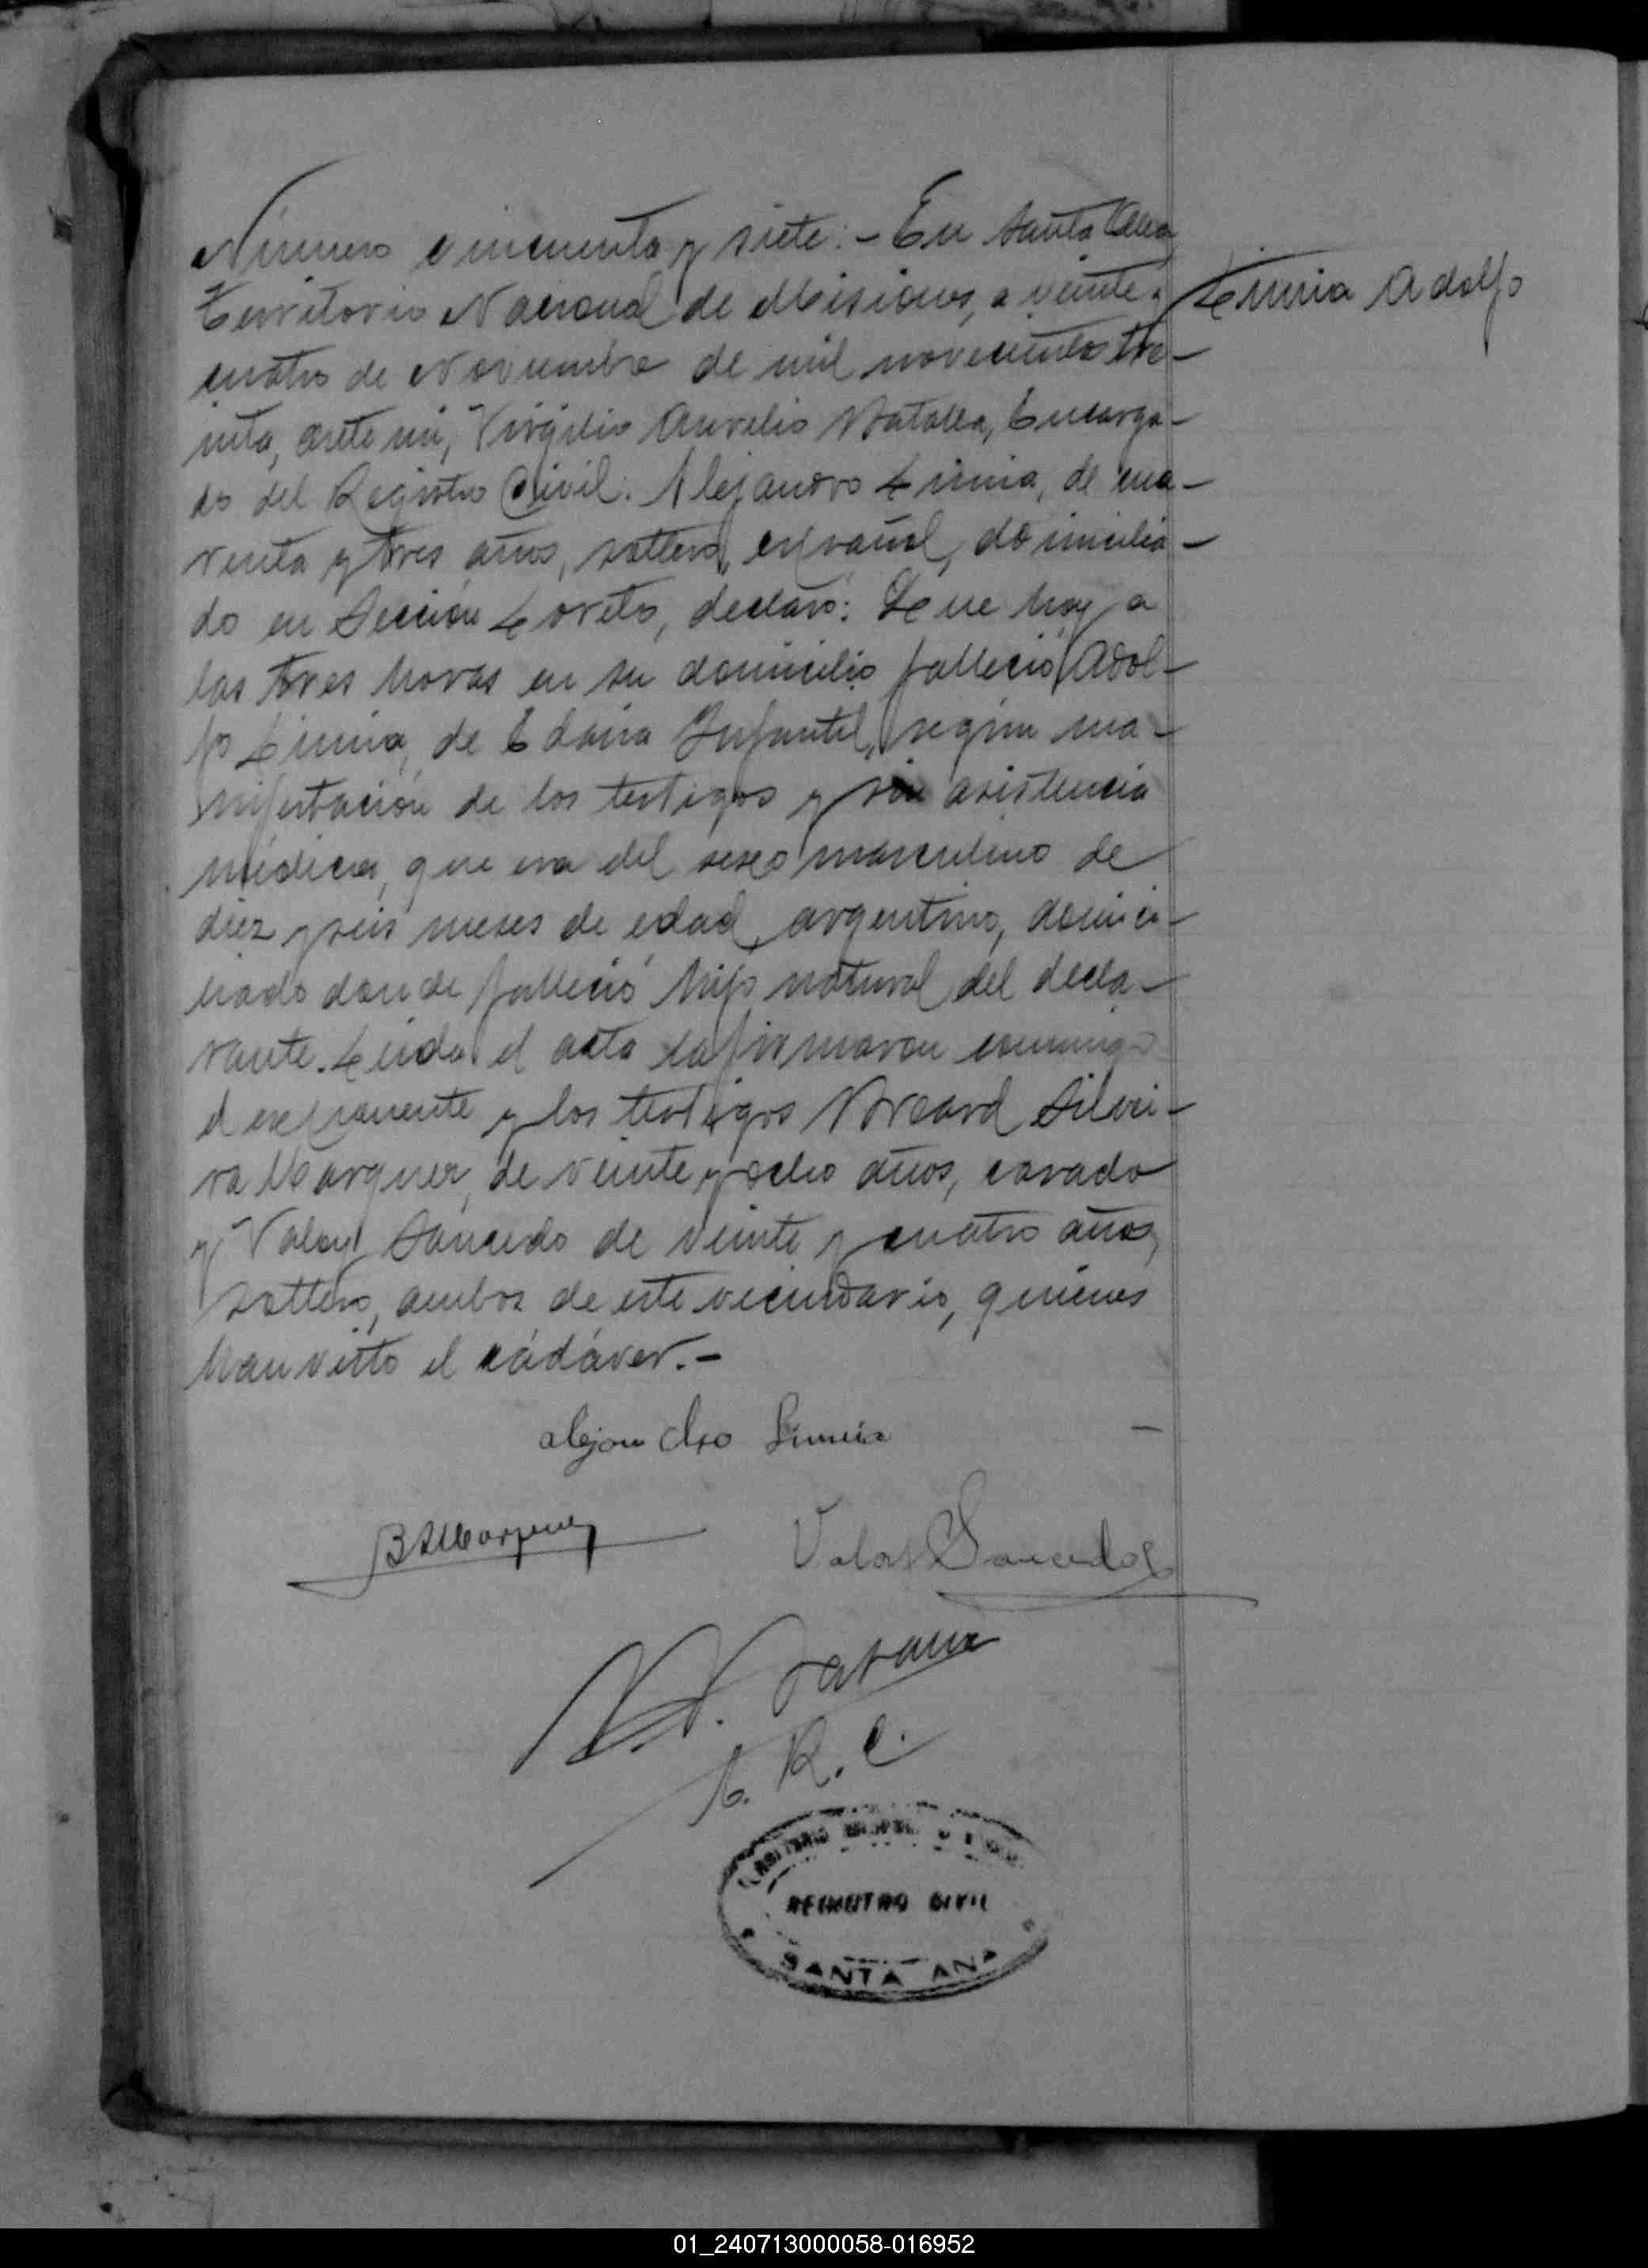 Número cincuenta y siete:- En Santa Ana
Territorio Nacional de Misiones, a veinte y
Limia Adolfo
cuatro de Noviembre de mil novecientos tre-
inta, ante mi, Virgilio Aurelio Batalla, Encarga-
do del Registro Civil: Alejandro Limia, de cua-
renta y tres años, soltero, español, domicilia-
do en Sección Loreto, declaró: Que hoy a
las tres horas en su domicilio falleció Adol-
fo Limia, de Edana Infantil, según ma-
nifestación de los testigos y sin asistencia
médica, que era del sexo masculino de
diez y seis meses de edad, argentino, domici-
liado donde falleció hijo natural del decla-
rante. Leida el acta la firmaron conmigo
el exponente y los testigos Brcard Silvei-
ra Marquez, de veinte y ocho años, casado
y Valoy Saucedo de veinte y cuatro años,
soltero, ambos de este vecindario, quienes
han visto el cádáver.-
alejandro Limia
BSMarquez
Valoy Saucedo
E. R. C.
REGISTRO CIVIL
SANTA ANA
01_240713000058-016952